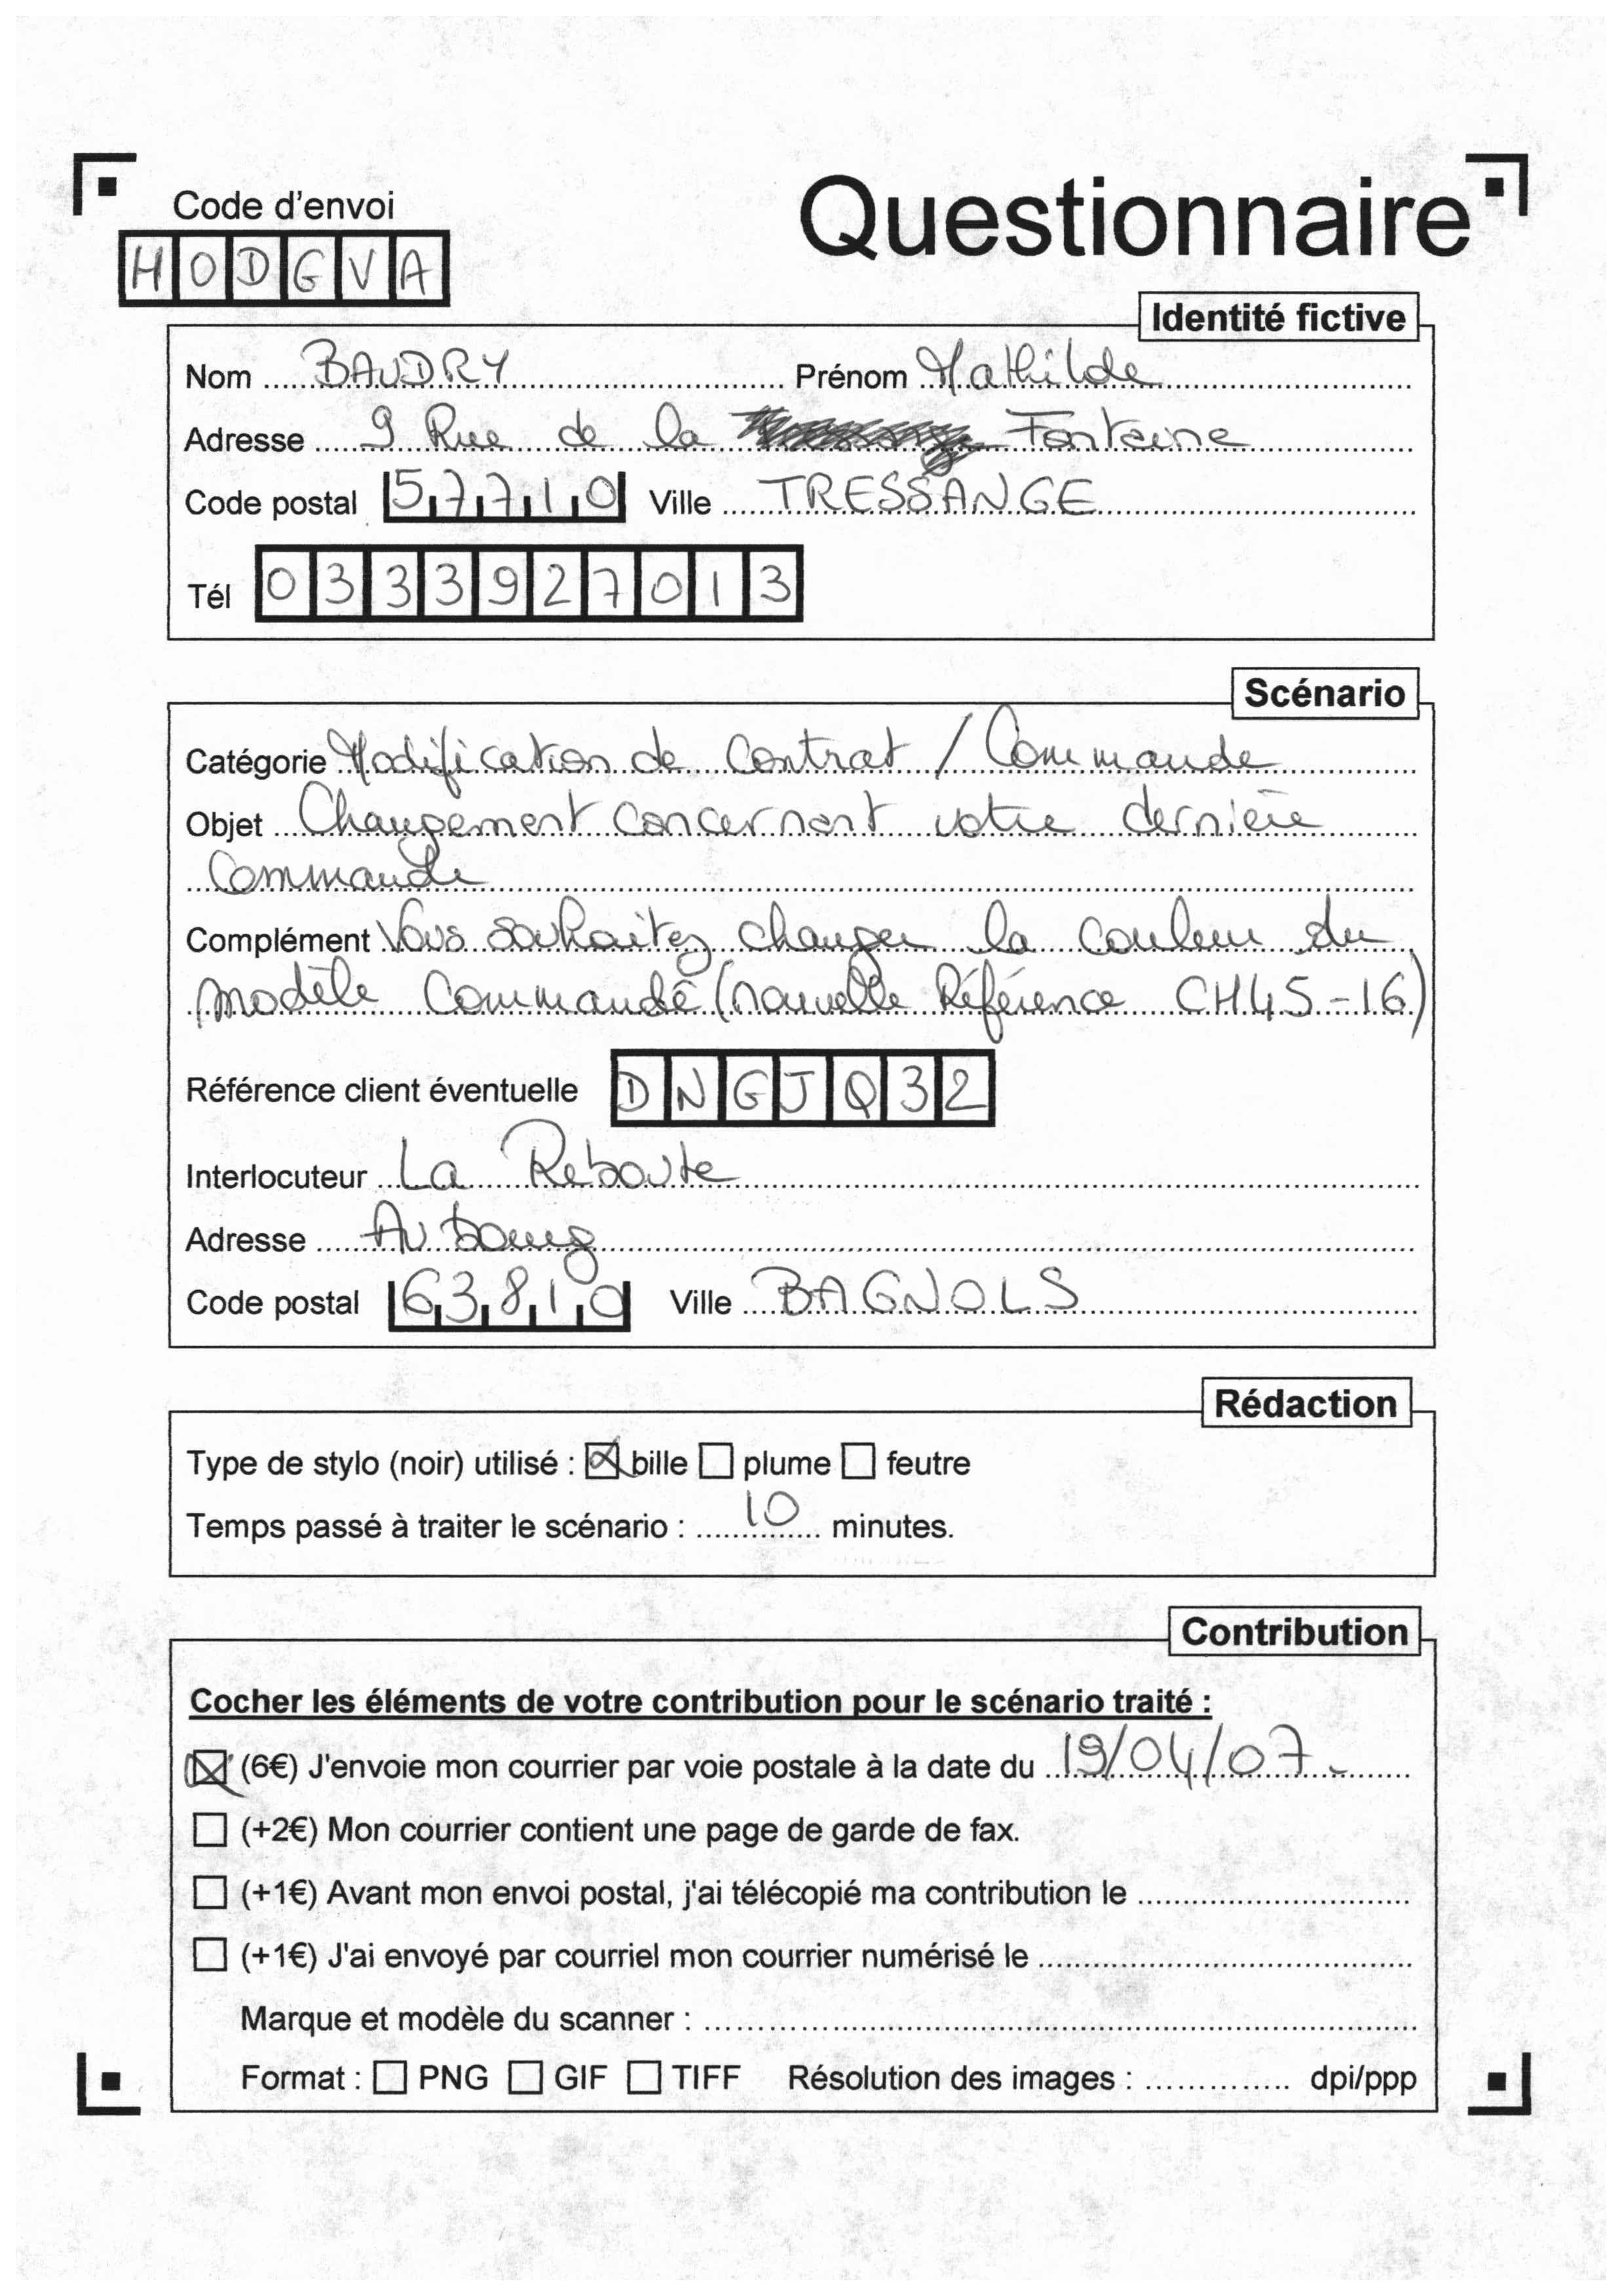 Code d'envoi
Questionnaire
HODGVA
Identité fictive
Nom BAUDRY Prénom Mathilde
Adresse 9 Rue de la Fontaine
Code postal 57710 Ville TRESSANGE
Tél 0333927013
Scénario
Catégorie Modification de Contrat / Commande
Objet Changement concernant votre dernière
Commande
Complément Vous souhaitez changer la couleur du
modèle Commandé (nouvelle Référence CH45-16)
Référence client éventuelle DNGJQ32
Interlocuteur La Reboute
Adresse Au bourg
Code postal 63810 Ville BAGNOLS
Rédaction
Type de stylo (noir) utilisé : bille plume feutre
Temps passé à traiter le scénario : 10 minutes.
Contribution
Cocher les éléments de votre contribution pour le scénario traité :
(6€) J'envoie mon courrier par voie postale à la date du 19/04/07.
(+2€) Mon courrier contient une page de garde de fax.
(+1€) Avant mon envoi postal, j'ai télécopié ma contribution le
(+1€) J'ai envoyé par courriel mon courrier numérisé le
Marque et modèle du scanner :
Format : PNG GIF TIFF Résolution des images : dpi/ppp